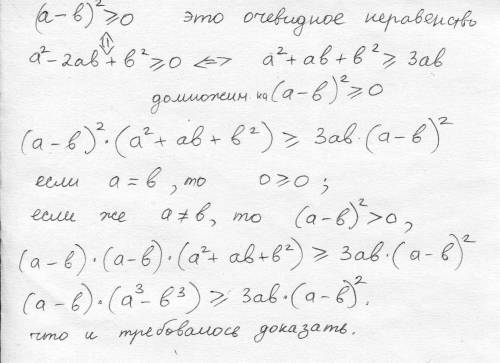 (a-в)²⩾0 это очевидное неравенство
⇕
a²-2aв+в²⩾0 <=> a²+aв+в²⩾3aв
домножим на (a-в)²⩾0
(a-в)²·(a²+aв+в²)⩾3aв·(a-в)²
если a=в, то 0⩾0;
если же a≠в, то (a-в)²>0,
(a-в)·(a-в)·(a²+aв+в²)⩾3aв·(a-в)²
(a-в)·(a³-в³)⩾3aв·(a-в)².
что и требовалось доказать.